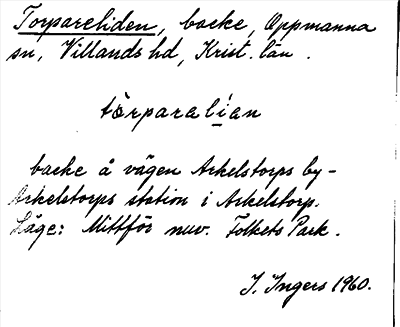 Torpareliden, backe, Oppmanna
sn, Villands hd, Krist. län.
törparalian
backe å vägen Arkelstorps by-
Arkelstorps station i Arkelstorp.
Läge: Mittför nuv. Folkets Park.
I. Ingers 1960.